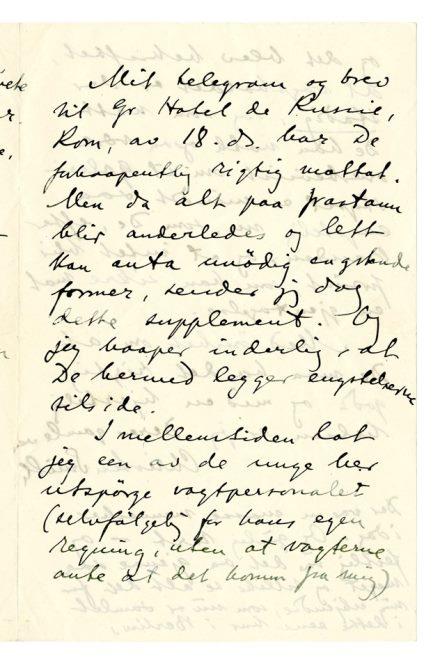 Mit telegram og brev
til Gr Hotel de Russie,
Rom, av 18. ds. har De
forhaapentlig rigtig mottat.
Men da alt paa frastann
blir anderledes og lett
kan anta unödig engstende
former, sender jeg dog
dette supplement. Og
jeg haaper inderlig, at
De hermed legger engstelserne
tilside.
I mellemtiden lot
jeg een av de unge her
utspörge vagtpersonalet
(selvfölgelig for hans egen
regning, uten at vagterne
ante at det kommer fra mig)